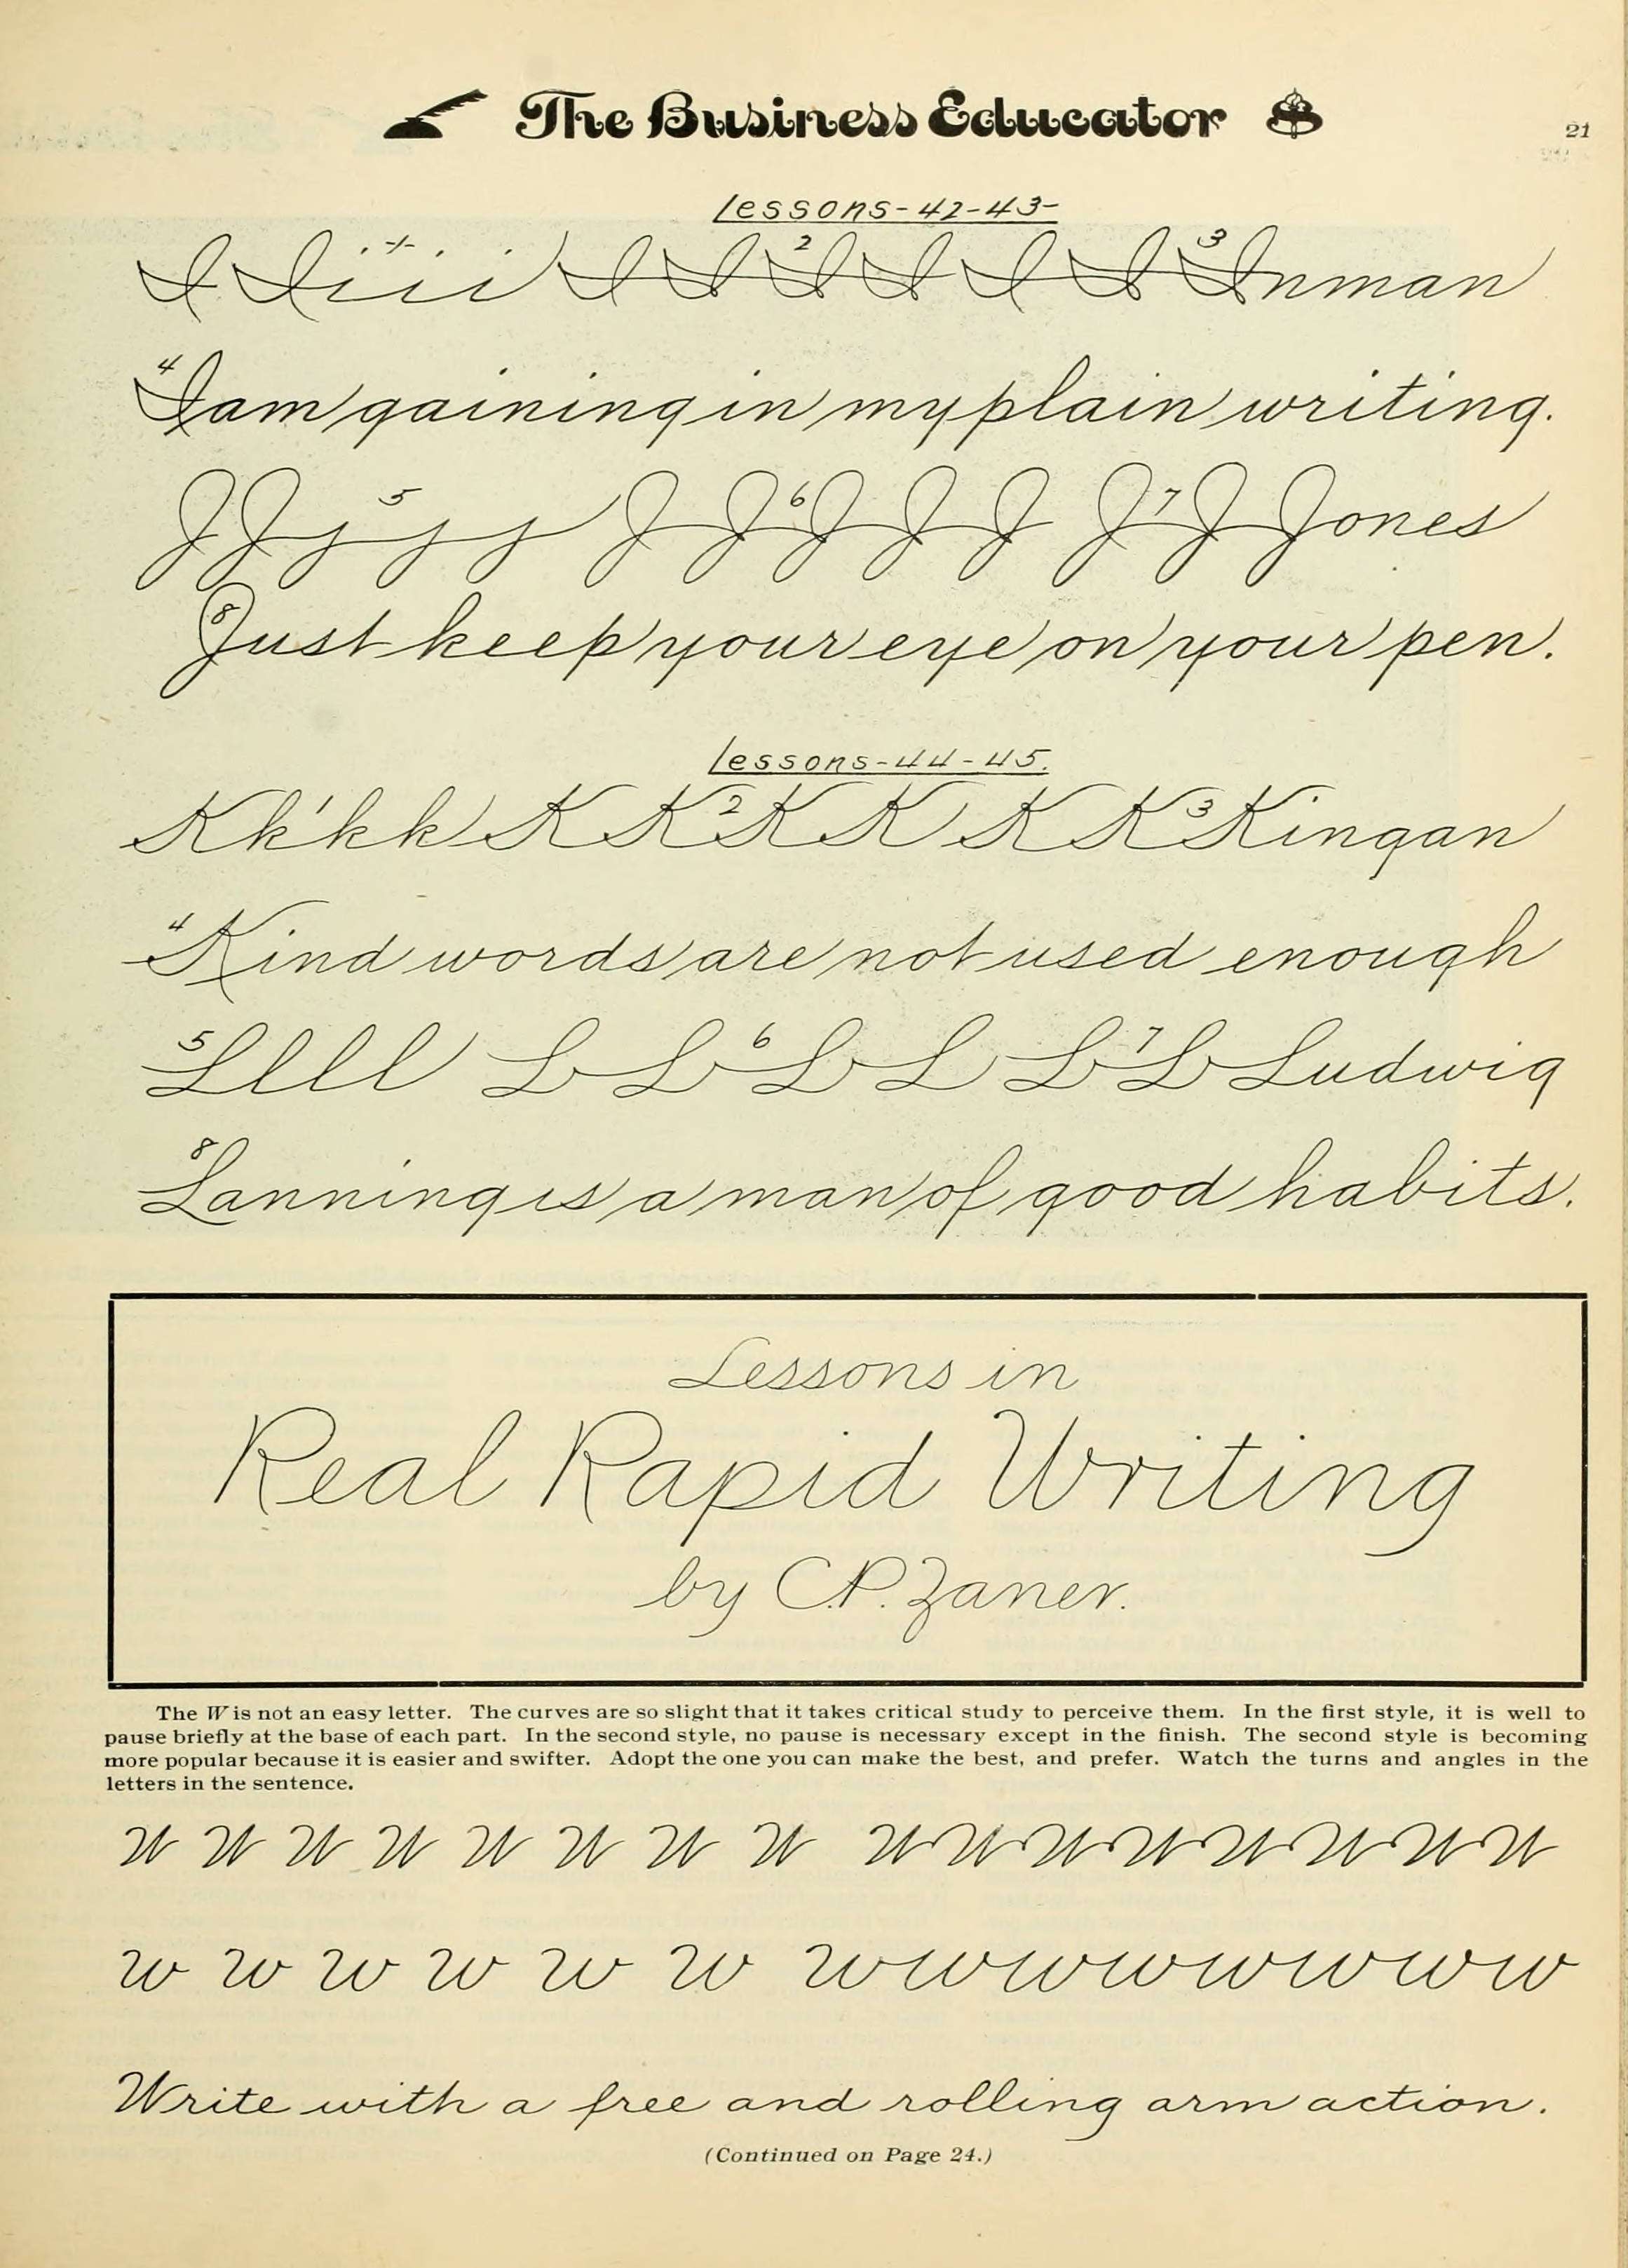 The Business Educator 21
Lessons-42-43-
I I i i i i I I 2 I I I I 3 Inman
4 I am gaining in my plain writing.
J J j 5 j j J J 6 J J J J 7 J Jones
8 Just keep your eye on your pen.
Lessons-44-45.
K k 1 k k K K 2 K K K K 3 Kingan
4 Kind words are not used enough
5 L l l l L L 6 L L L 7 L Ludwig
8 Lanning is a man of good habits.
Lessons in
Real Rapid Writing
by C.P. Zaner.
The W is not an easy letter. The curves are so slight that it takes critical study to perceive them. In the first style, it is well to
pause briefly at the base of each part. In the second style, no pause is necessary except in the finish. The second style is becoming
more popular because it is easier and swifter. Adopt the one you can make the best, and prefer. Watch the turns and angles in the
letters in the sentence.
W W W W W W W W W W W W W W W W
W W W W W W W W W W W W W W
Write with a free and rolling arm action.
(Continued on Page 24.)